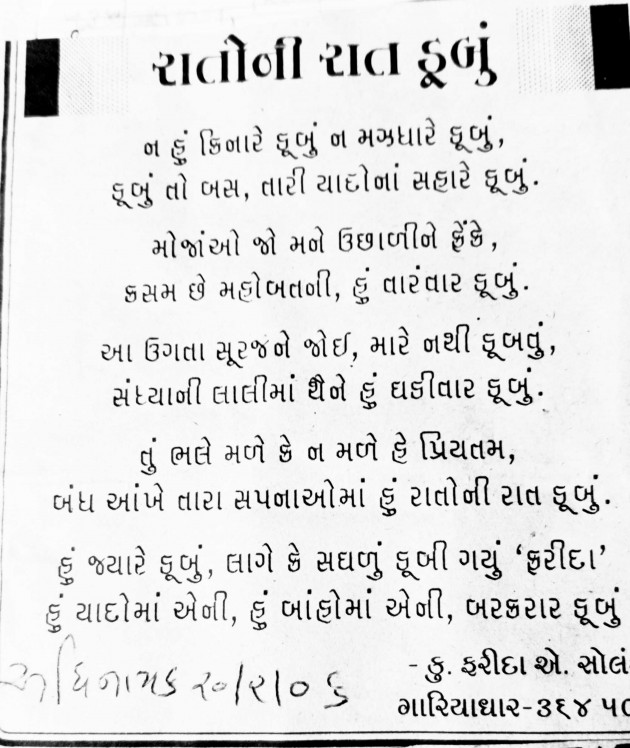 રાતોની રાત ડૂબું
ન હું કિનારે ડૂબું ન મઝધારે ડૂબું,
ડૂબું તો બસ, તારી યાદોનાં સહારે ડૂબું.
મોજાંઓ જો મને ઉછાળીને ફેંકે,
કસમ છે મહોબતની, હું વારંવાર ડૂબું.
આ ઉગતા સૂરજને જોઈ, મારે નથી ડૂબવું,
સંધ્યાની લાલીમાં થૈને હું ઘડીવાર ડૂબું.
તું ભલે મળે કે ન મળે હે પ્રિયતમ,
બંધ આંખે તારા સપનાઓમાં હું રાતોની રાત ડૂબું.
હું જ્યારે ડૂબું, લાગે કે સઘળું ડૂબી ગયું ‘ફરીદા’
હું યાદોમાં એની, હું બાંહોમાં એની, બરકરાર ડૂબું
- કુ. ફરીદા એ. સોલં
ગારિયાધાર-૩૬૪ ૫૦
અધિનાયક ૨૦/૨/૦૬